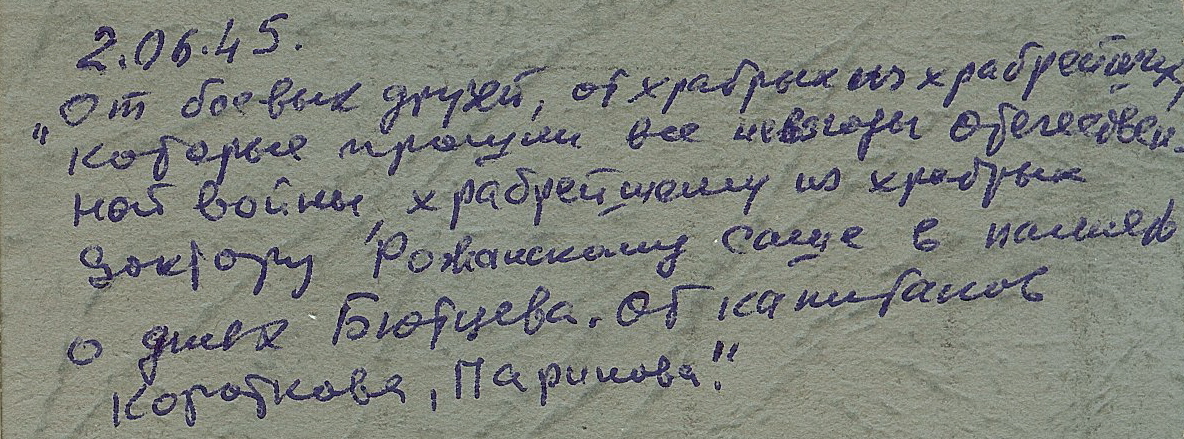 2.06.45.
"От боевых друзей, от храбрых из храбрейших,
которые прошли все невзгоды Отечествен-
ной войны, храбрейшему из храбрых
доктору Рожанскому Саше в память
о днях Бютцева. От капитанов
Короткова, Паринова!"